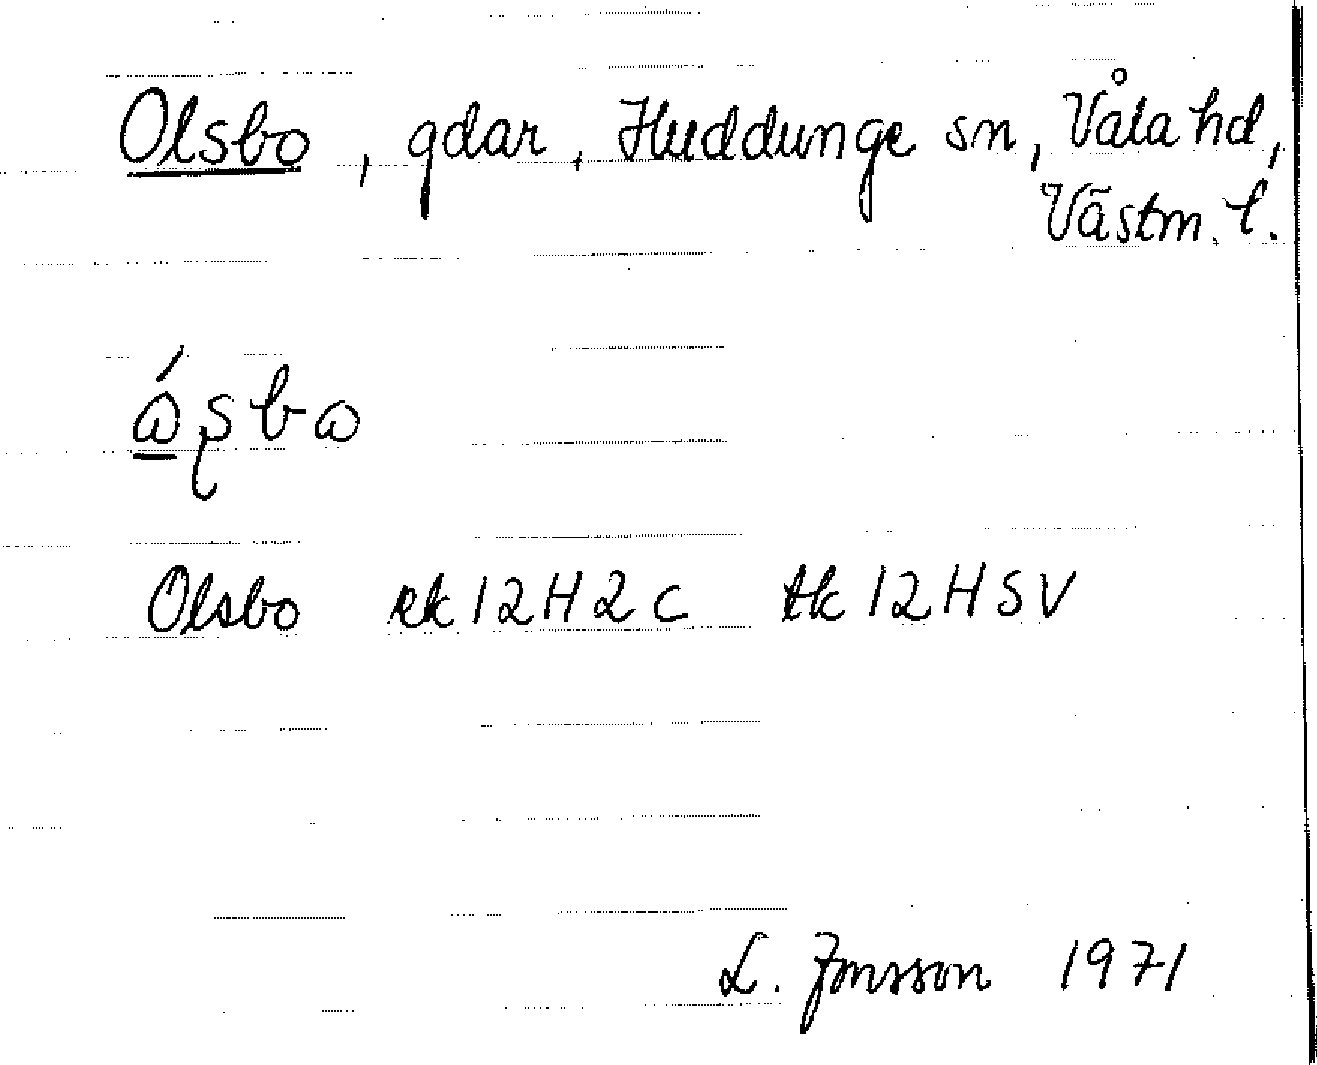 Olsbo, gdar, Huddunge sn, Våla hd,
Västm. l.
Olsbo ek 12H2c tk 12HSV
L. Jonsson 1971